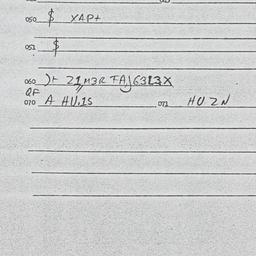 050 $ XAP+
051 $
060 )+ Z1M3R TAJ63L3X
QF
070 A HU.1S 071 HU2N